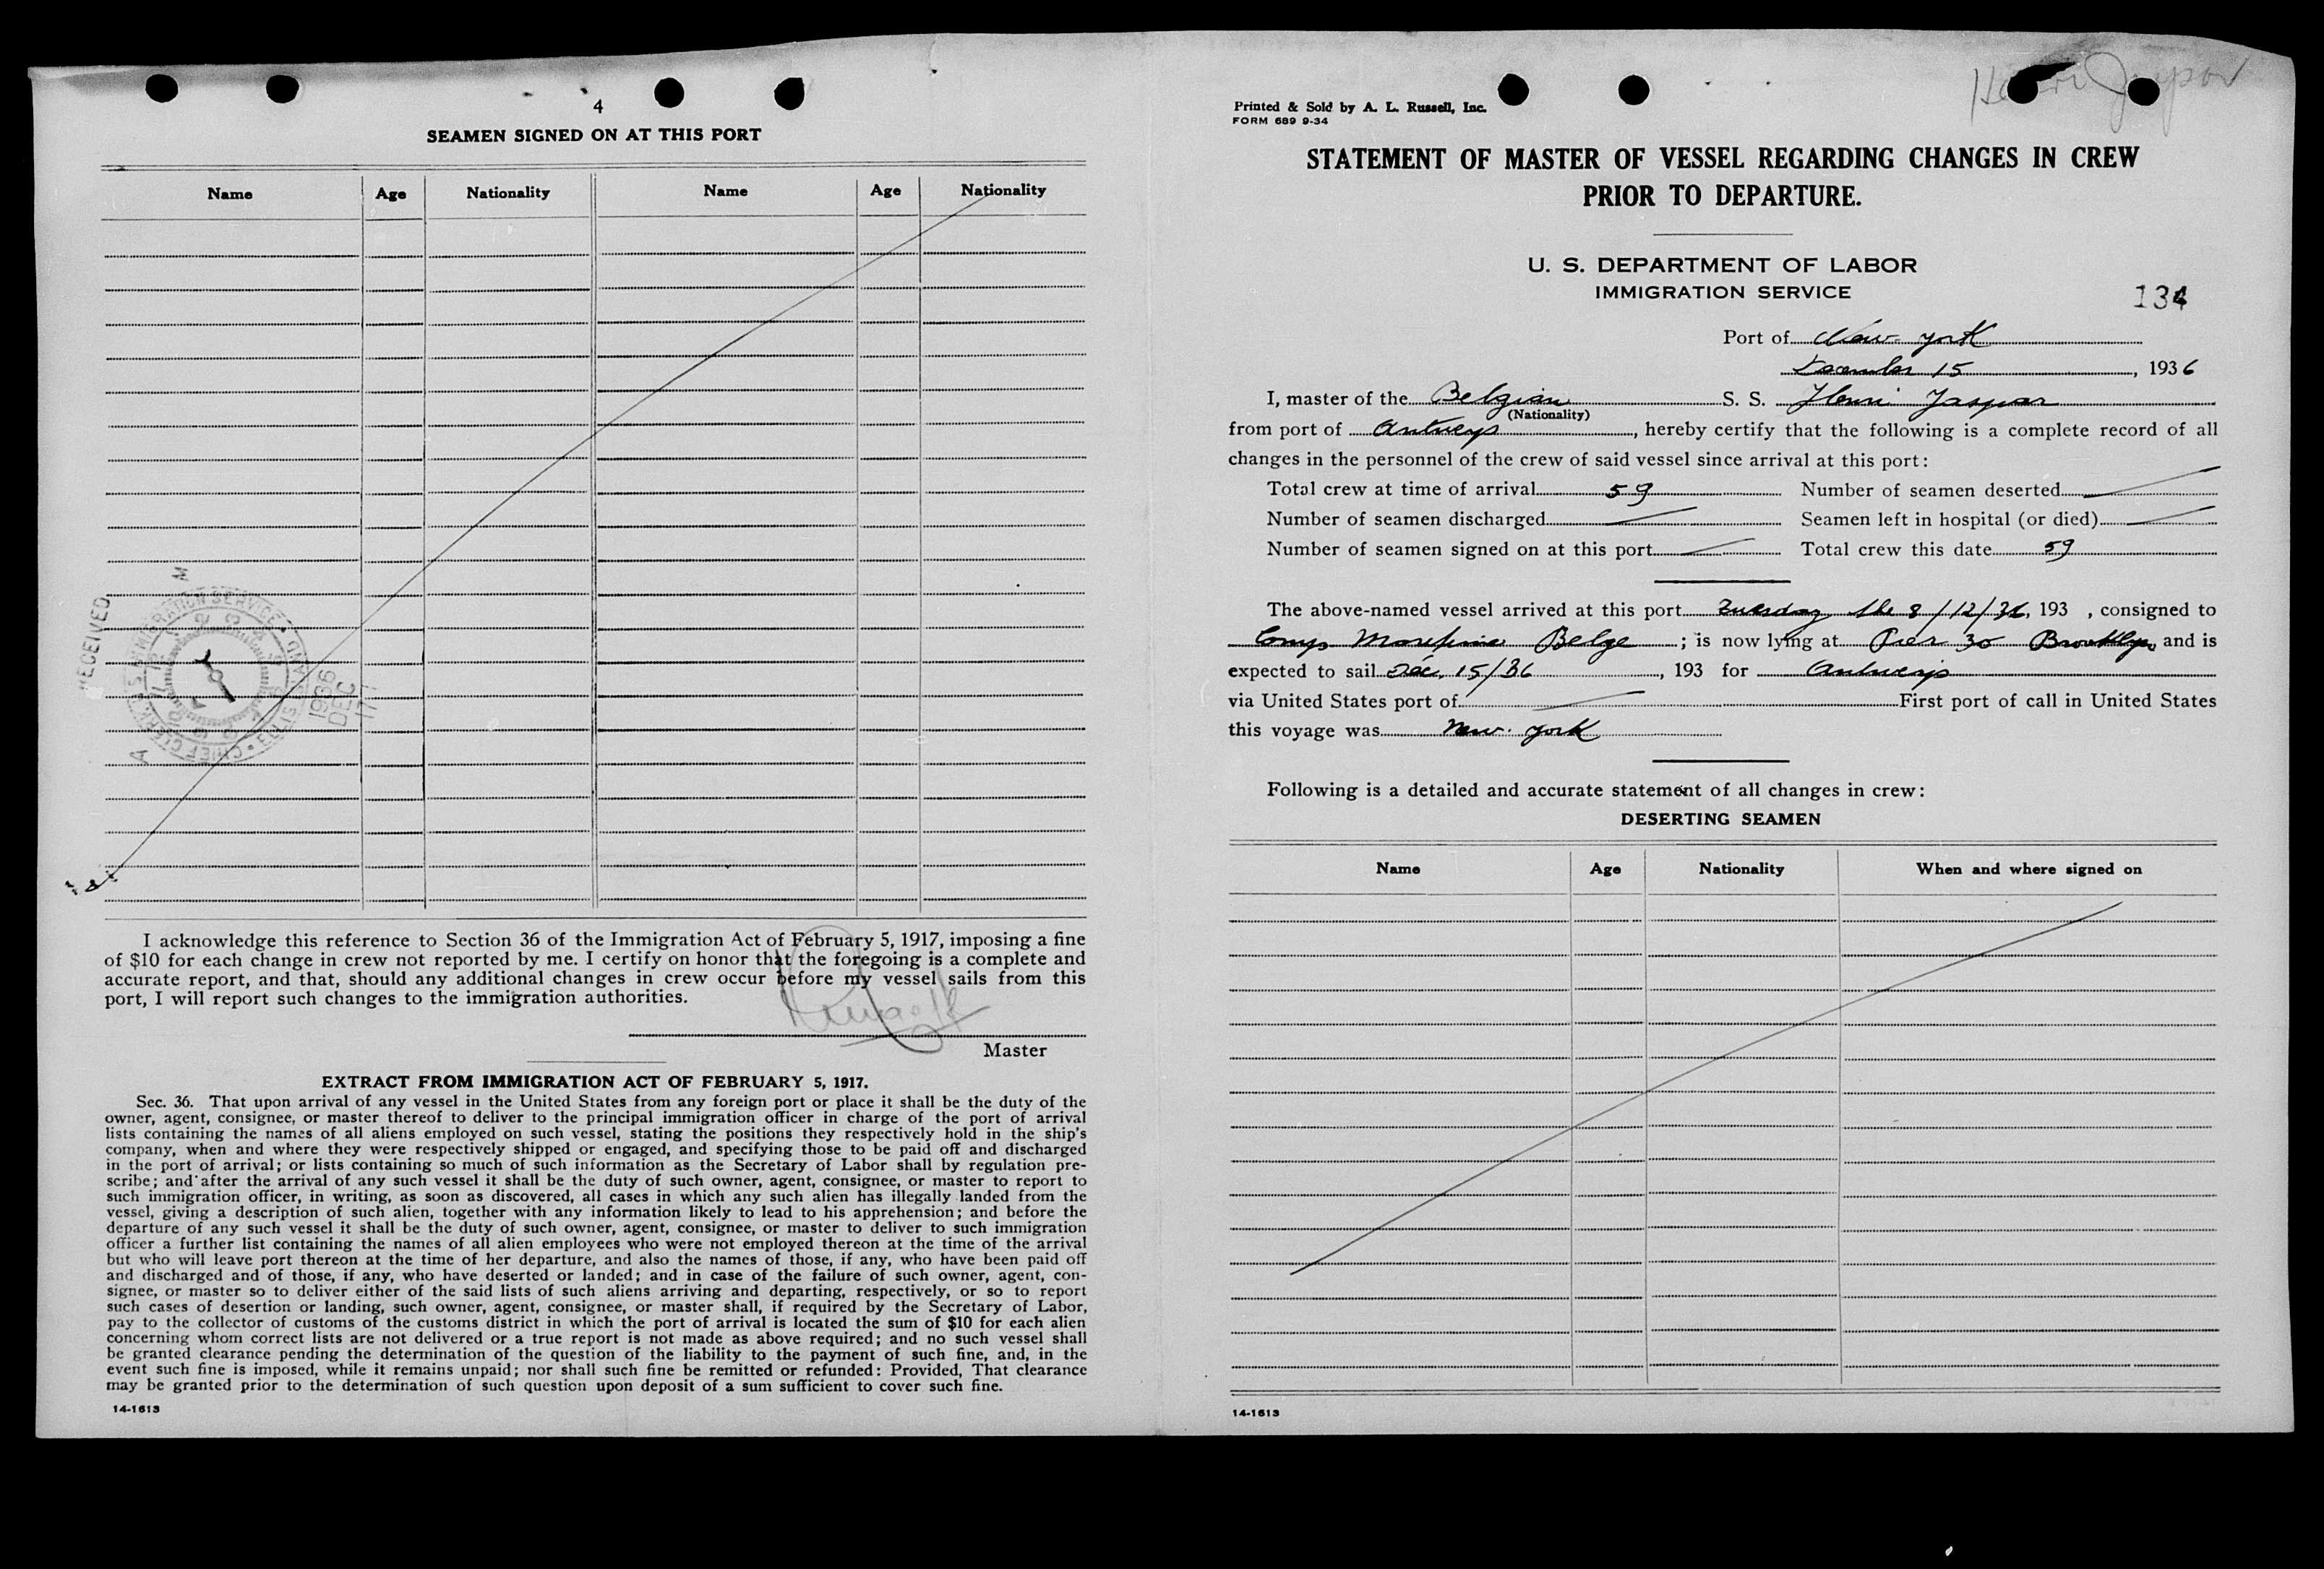 4
SEAMEN SIGNED ON AT THIS PORT
Name Age Nationality Name Age Nationality
RECEIVED
IMMIGRATION SERVICE
CHIEF CLERK'S
ELLIS ISLAND
1936
DEC
17
A
M
I acknowledge this reference to Section 36 of the Immigration Act of February 5, 1917, imposing a fine
of $10 for each change in crew not reported by me. I certify on honor that the foregoing is a complete and
accurate report, and that, should any additional changes in crew occur before my vessel sails from this
port, I will report such changes to the immigration authorities.
Master
EXTRACT FROM IMMIGRATION ACT OF FEBRUARY 5, 1917.
Sec. 36. That upon arrival of any vessel in the United States from any foreign port or place it shall be the duty of the
owner, agent, consignee, or master thereof to deliver to the principal immigration officer in charge of the port of arrival
lists containing the names of all aliens employed on such vessel, stating the positions they respectively hold in the ship's
company, when and where they were respectively shipped or engaged, and specifying those to be paid off and discharged
in the port of arrival; or lists containing so much of such information as the Secretary of Labor shall by regulation pre-
scribe; and after the arrival of any such vessel it shall be the duty of such owner, agent, consignee, or master to report to
such immigration officer, in writing, as soon as discovered, all cases in which any such alien has illegally landed from the
vessel, giving a description of such alien, together with any information likely to lead to his apprehension; and before the
departure of any such vessel it shall be the duty of such owner, agent, consignee, or master to deliver to such immigration
officer a further list containing the names of all alien employees who were not employed thereon at the time of the arrival
but who will leave port thereon at the time of her departure, and also the names of those, if any, who have been paid off
and discharged and of those, if any, who have deserted or landed; and in case of the failure of such owner, agent, con-
signee, or master so to deliver either of the said lists of such aliens arriving and departing, respectively, or so to report
such cases of desertion or landing, such owner, agent, consignee, or master shall, if required by the Secretary of Labor,
pay to the collector of customs of the customs district in which the port of arrival is located the sum of $10 for each alien
concerning whom correct lists are not delivered or a true report is not made as above required; and no such vessel shall
be granted clearance pending the determination of the question of the liability to the payment of such fine, and, in the
event such fine is imposed, while it remains unpaid; nor shall such fine be remitted or refunded: Provided, That clearance
may be granted prior to the determination of such question upon deposit of a sum sufficient to cover such fine.
14-1613
Henri Jaspar
Printed & Sold by A. L. Russell, Inc.
FORM 689 9-34
STATEMENT OF MASTER OF VESSEL REGARDING CHANGES IN CREW
PRIOR TO DEPARTURE.
U. S. DEPARTMENT OF LABOR
IMMIGRATION SERVICE
134
Port of New-York
December 15, 1936
I, master of the Belgian S. S. Henri Jaspar
(Nationality)
from port of Antwerp, hereby certify that the following is a complete record of all
changes in the personnel of the crew of said vessel since arrival at this port:
Total crew at time of arrival 59 Number of seamen deserted
Number of seamen discharged Seamen left in hospital (or died)
Number of seamen signed on at this port Total crew this date 59
The above-named vessel arrived at this port Tuesday the 8/12/36, 193 , consigned to
Belge; is now lying at Pier 30 Brooklyn, and is
expected to sail Déc. 15/36, 193 for Antwerp
via United States port of First port of call in United States
this voyage was New-York
Following is a detailed and accurate statement of all changes in crew:
DESERTING SEAMEN
Name Age Nationality When and where signed on
14-1613